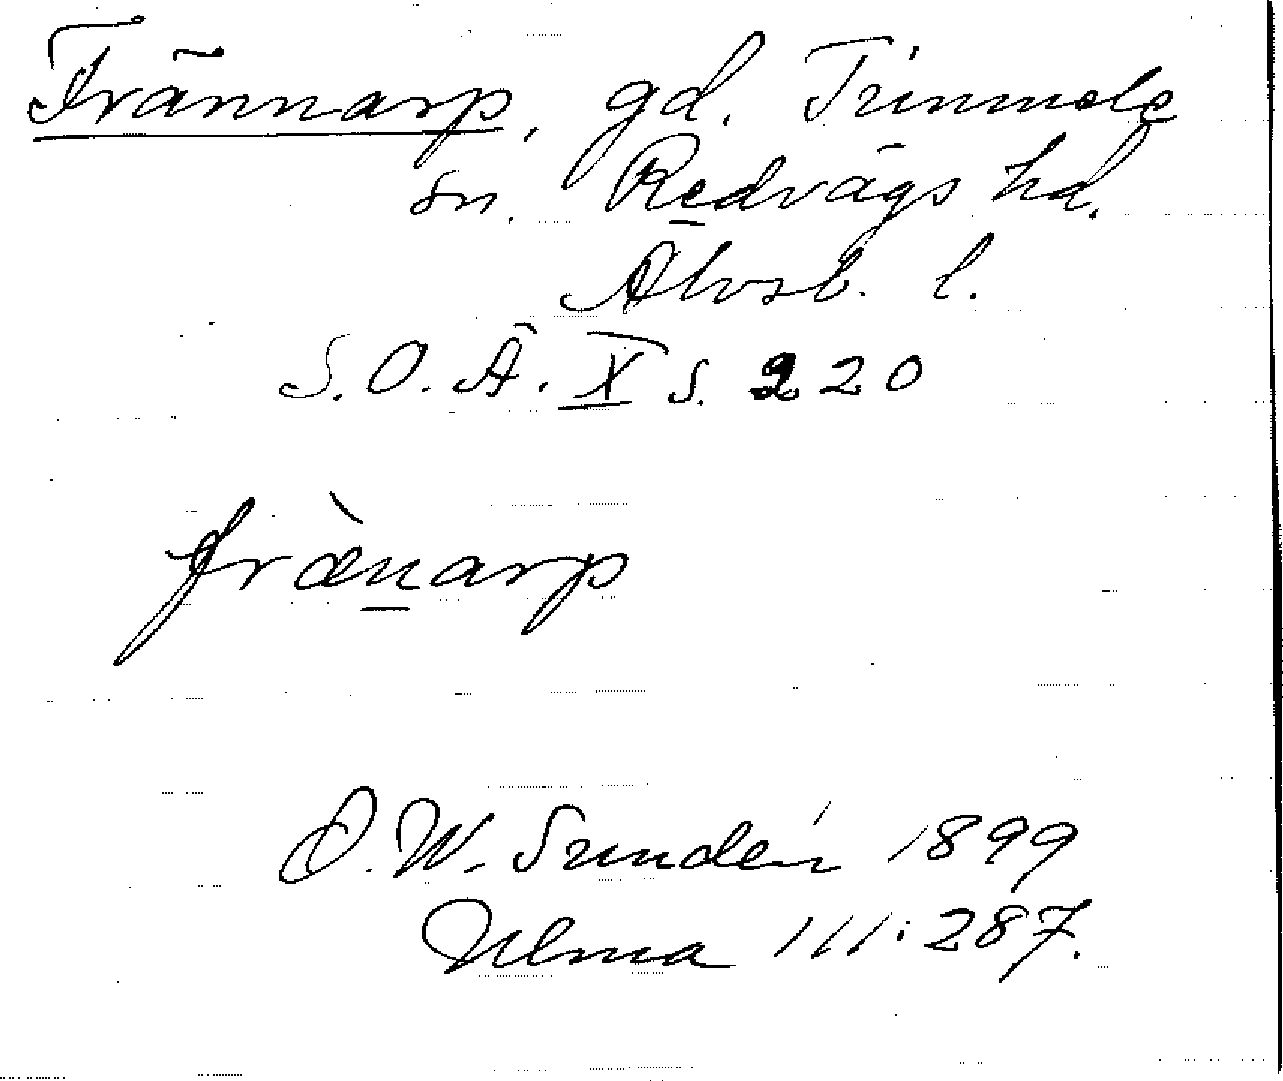 Frännarp, gd. Timmele
sn. Redvägs hd.
Älvsb. l.
S.O.Ä. X s. 220
fræ̀narp
D. W. Sundén 1899
Ulma 111:287.